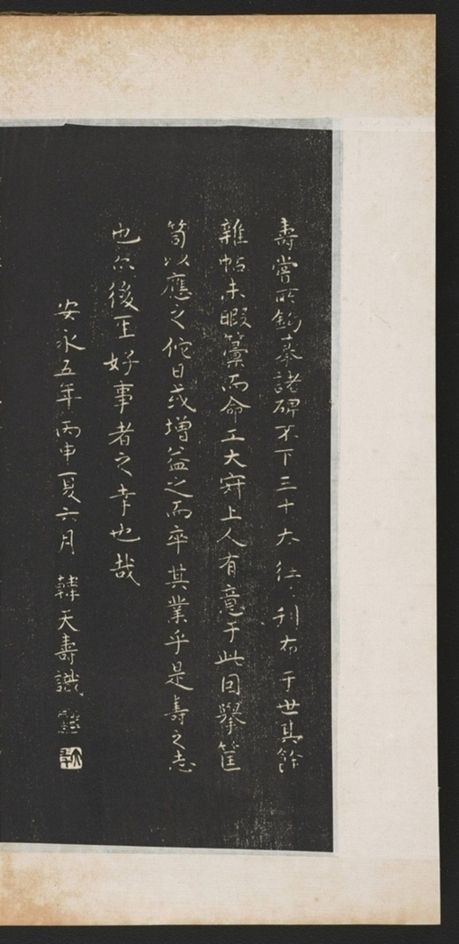 壽嘗所鉤摹諸碑不下三十大徃々刊布于世其餘
雜帖未暇彙而命工大寂上人有意于此因擧筐
笥以應之佗日或増益之而卒其業乎是壽之志
也尒後至好事者之幸也哉
安永五年丙申夏六月 韓天壽識